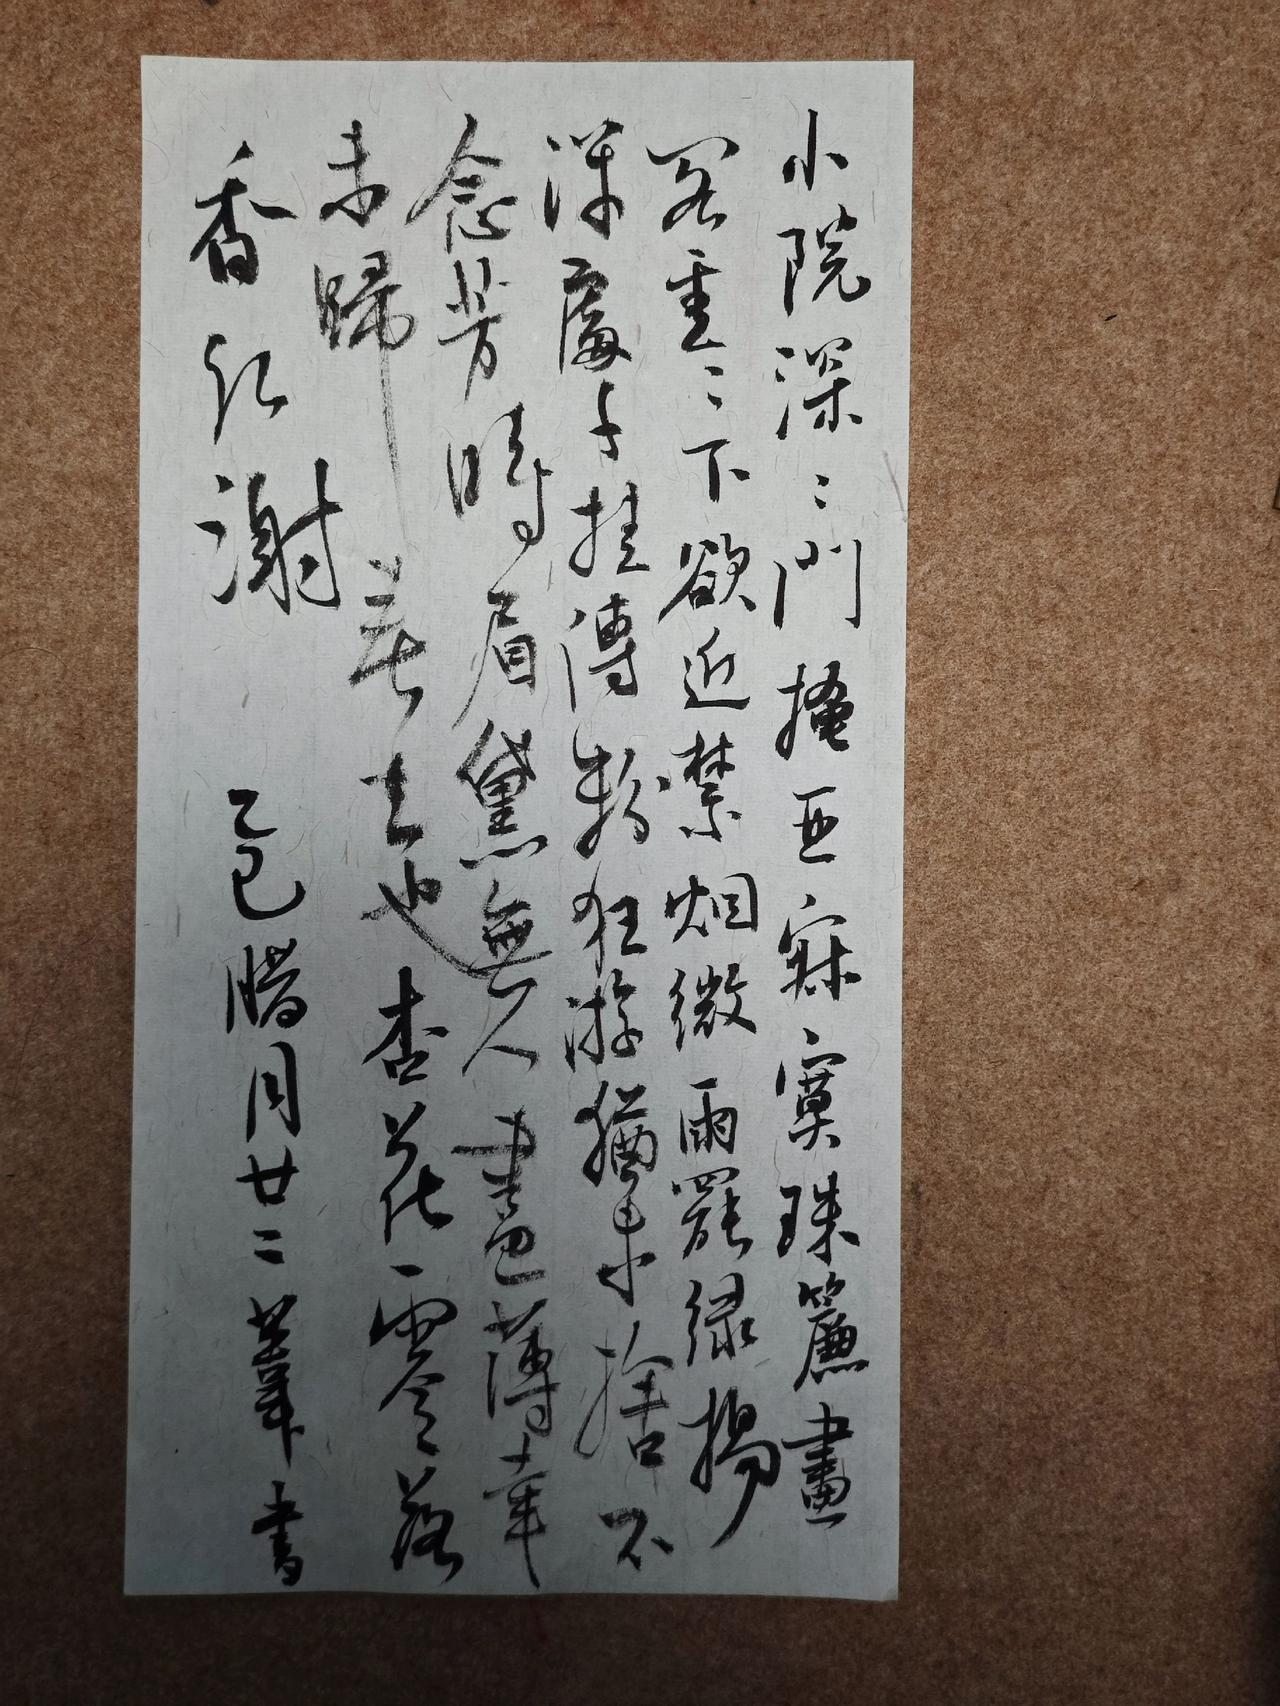 小院深〻門掩亞寂寞珠簾畫
閣重〻下欲近禁烟微雨罷緑楊
深處千挂傅粉狂游猶未捨不
念芳時眉黛無人畫薄幸
未歸春去也杏花零落
香紅謝 乙巳腊月廿二葦書